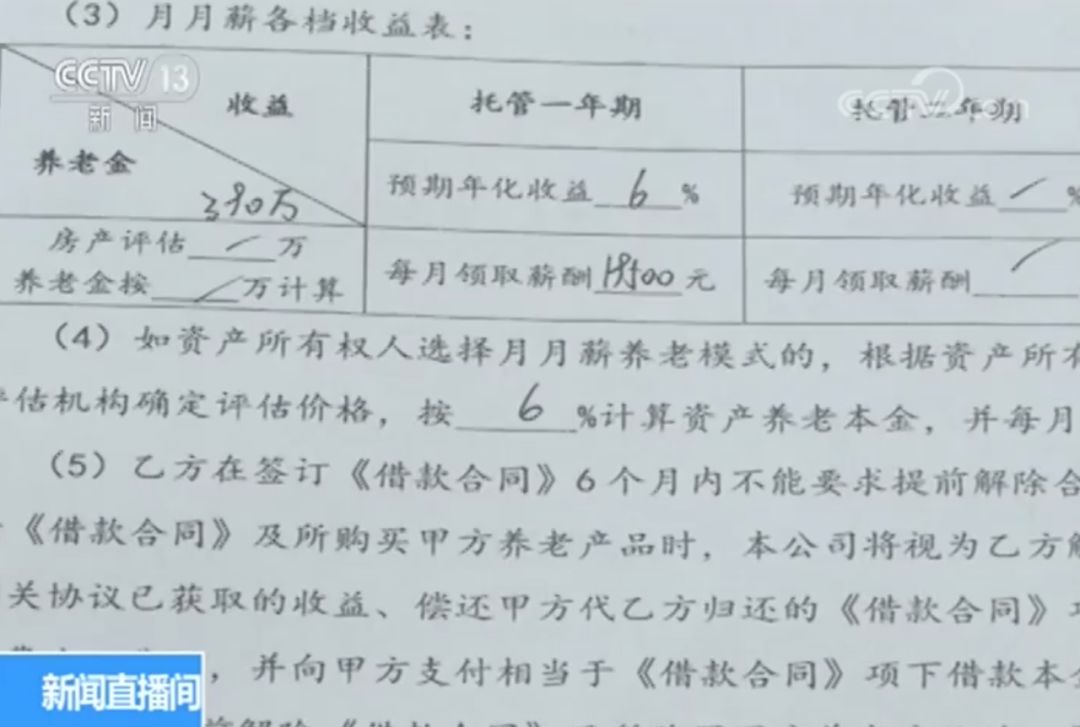 （3）月月薪各档收益表：
CCTV 13
新闻
收益
养老金
390万
托管一年期
托管二年期
预期年化收益 6 %
预期年化收益 %
房产评估 万
养老金按 万计算
每月领取薪酬 19500 元
每月领取薪酬
（4）如资产所有权人选择月月薪养老模式的，根据资产所有
估机构确定评估价格，按 6 %计算资产养老本金，并每月
（5）乙方在签订《借款合同》6个月内不能要求提前解除合
《借款合同》及所购买甲方养老产品时，本公司将视为乙方解
关协议已获取的收益、偿还甲方代乙方归还的《借款合同》项
，并向甲方支付相当于《借款合同》项下借款本金
新闻直播间